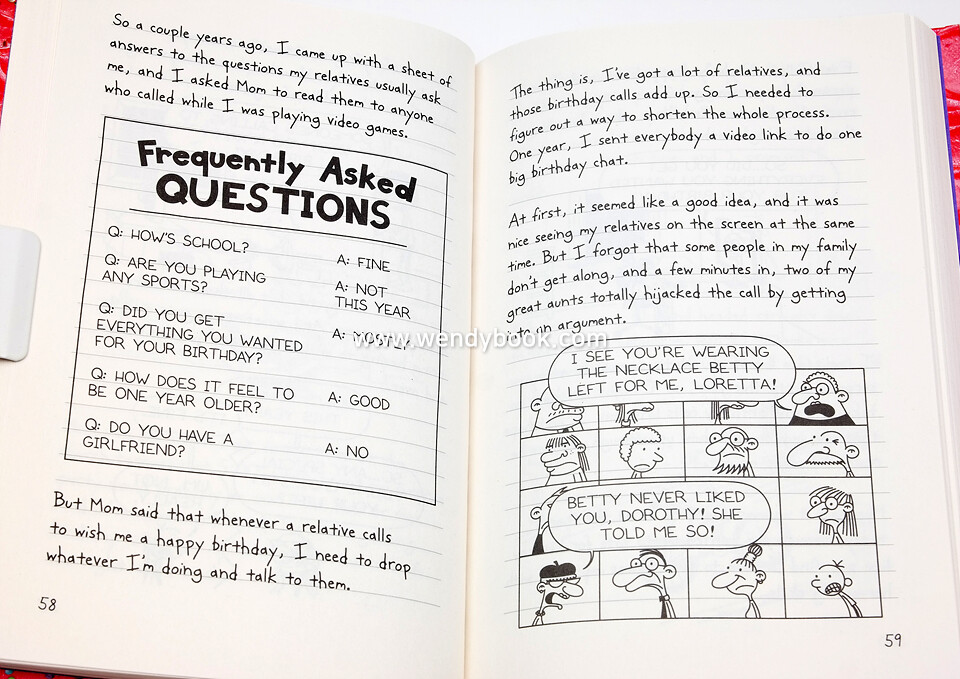 So a couple years ago, I came up with a sheet of
answers to the questions my relatives usually ask
me, and I asked Mom to read them to anyone
who called while I was playing video games.
Frequently Asked
QUESTIONS
Q: HOW'S SCHOOL?
A: FINE
Q: ARE YOU PLAYING
ANY SPORTS?
A: NOT
THIS YEAR
Q: DID YOU GET
EVERYTHING YOU WANTED
FOR YOUR BIRTHDAY?
A: MOSTLY
Q: HOW DOES IT FEEL TO
BE ONE YEAR OLDER?
A: GOOD
Q: DO YOU HAVE A
GIRLFRIEND?
A: NO
But Mom said that whenever a relative calls
to wish me a happy birthday, I need to drop
whatever I'm doing and talk to them.
58
The thing is, I've got a lot of relatives, and
those birthday calls add up. So I needed to
figure out a way to shorten the whole process.
One year, I sent everybody a video link to do one
big birthday chat.
At first, it seemed like a good idea, and it was
nice seeing my relatives on the screen at the same
time. But I forgot that some people in my family
don't get along, and a few minutes in, two of my
great aunts totally hijacked the call by getting
into an argument.
www.wendybook.com
I SEE YOU'RE WEARING
THE NECKLACE BETTY
LEFT FOR ME, LORETTA!
BETTY NEVER LIKED
YOU, DOROTHY! SHE
TOLD ME SO!
59